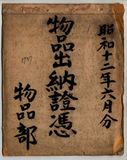 昭和十二年六月分
物品出納證憑
物品部